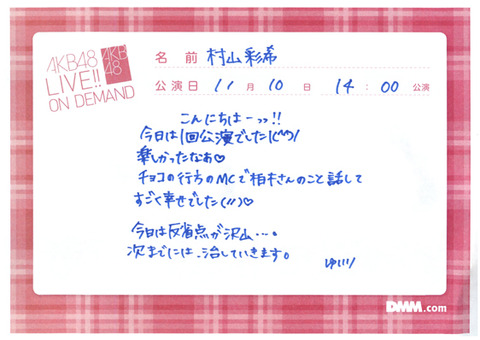 AKB48
LIVE!!
ON DEMAND
AKB
48
名前 村山彩希
公演日 11月10日 14:00公演
こんにちはーっっ!!
今日は1回公演でした!(^^)/
楽しかったなぁ♡
チョコの行方のMCで柏木さんのこと話して
すごく幸せでした(//)♡
今日は反省点が沢山…。
次までには、治していきます。
ゆいり
DMM.com